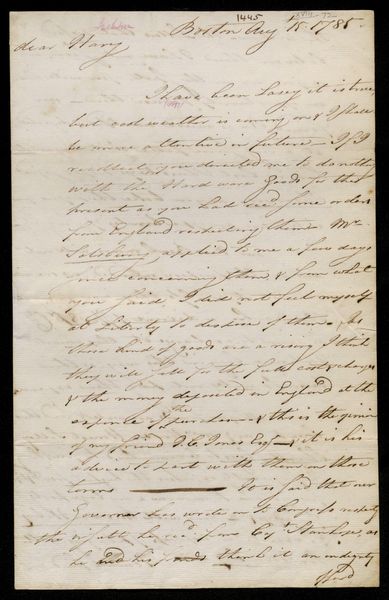 1445
Boston Aug 15. 1785
dear Harry
I have been Lasey it is true
but cool weather is coming on & I shall
be more attentive in future — If I
recollect, you directed me to do nothing
with the Hard ware Goods for the
present as you had rec'd some orders
from England respecting them. Mr
Salsbury applied to me a few days
since concerning them & from what
you said, I did not feel myself
at Liberty to dispose of them. As
those kind of goods are a rising I think
they will sell for the full cost & charges
& the money deposited in England at the
expence of the purchaser & this is the opinion
of my friend Jones Esqr — it is his
advice to part with them on those
terms — It is said that our
Governor has wrote on to Congress respectg
the insult he rec'd from Capt Stanhope, as
he and his think it an indignity